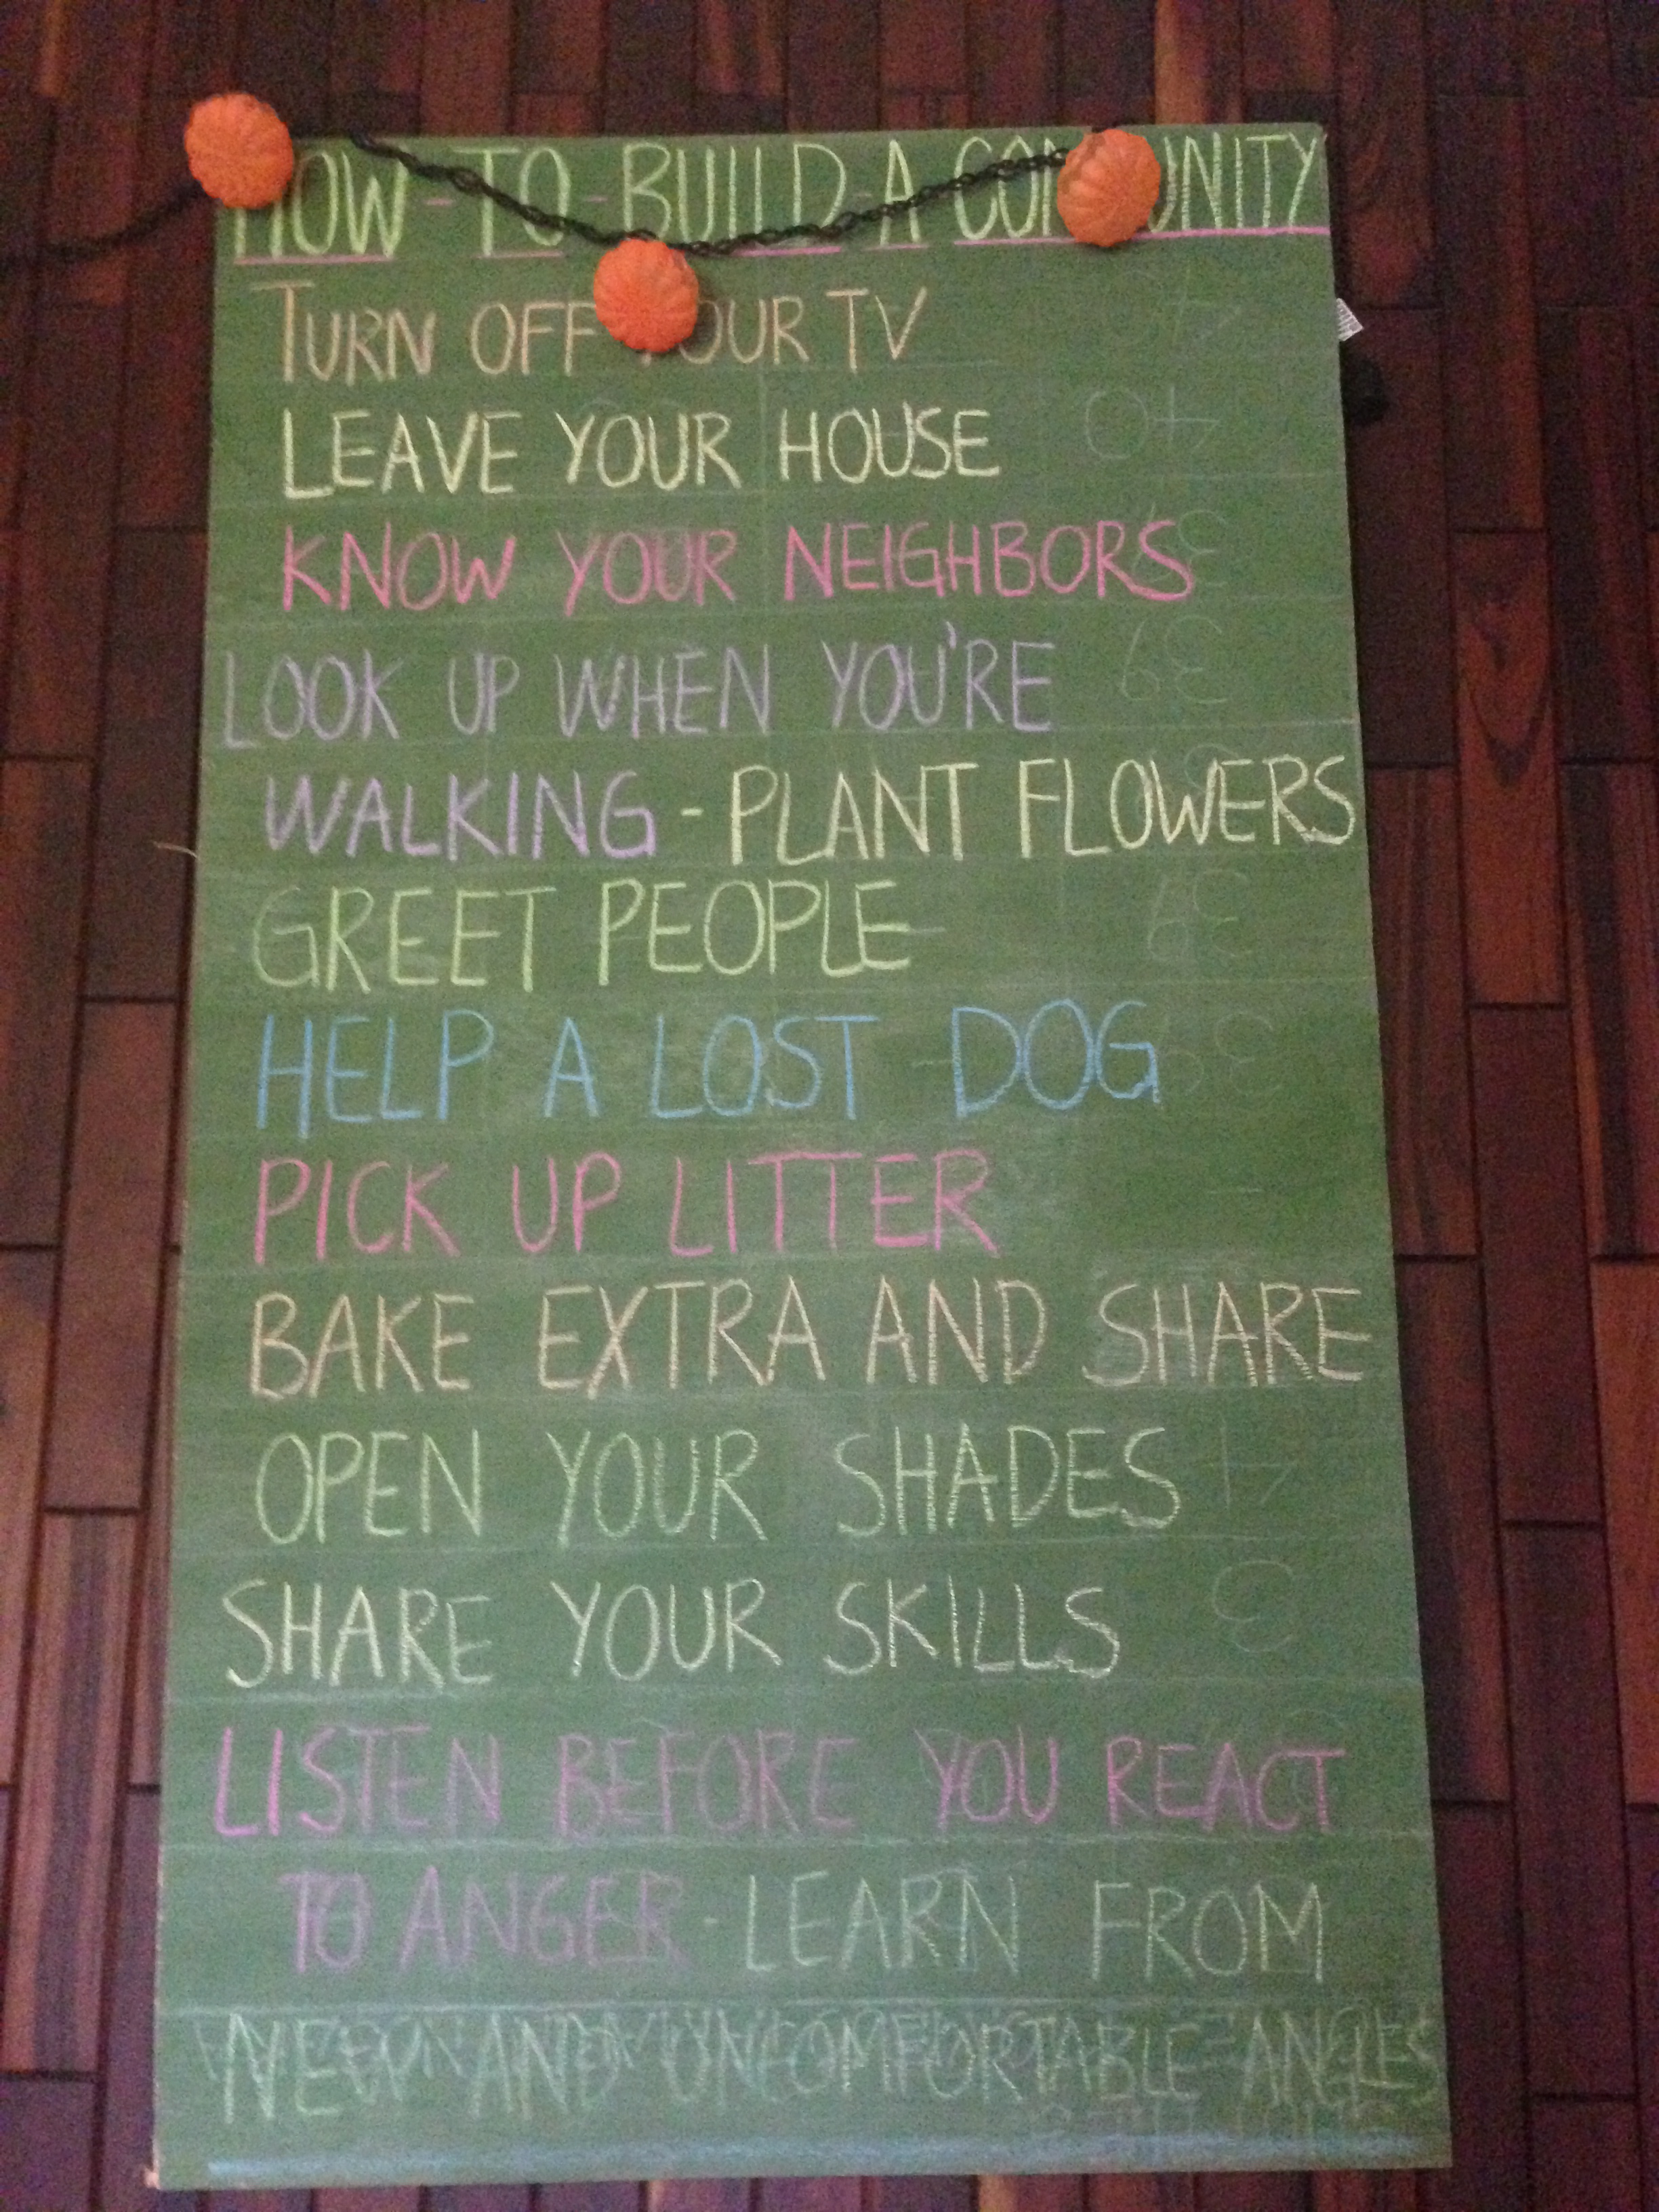 HOW-TO-BUILD-A COMMUNITY
TURN OFF YOUR TV
LEAVE YOUR HOUSE
KNOW YOUR NEIGHBORS
LOOK UP WHEN YOU'RE
WALKING - PLANT FLOWERS
GREET PEOPLE
HELP A LOST DOG
PICK UP LITTER
BAKE EXTRA AND SHARE
OPEN YOUR SHADES
SHARE YOUR SKILLS
LISTEN BEFORE YOU REACT
TO ANGER - LEARN FROM
NEW AND UNCOMFORTABLE ANGLES